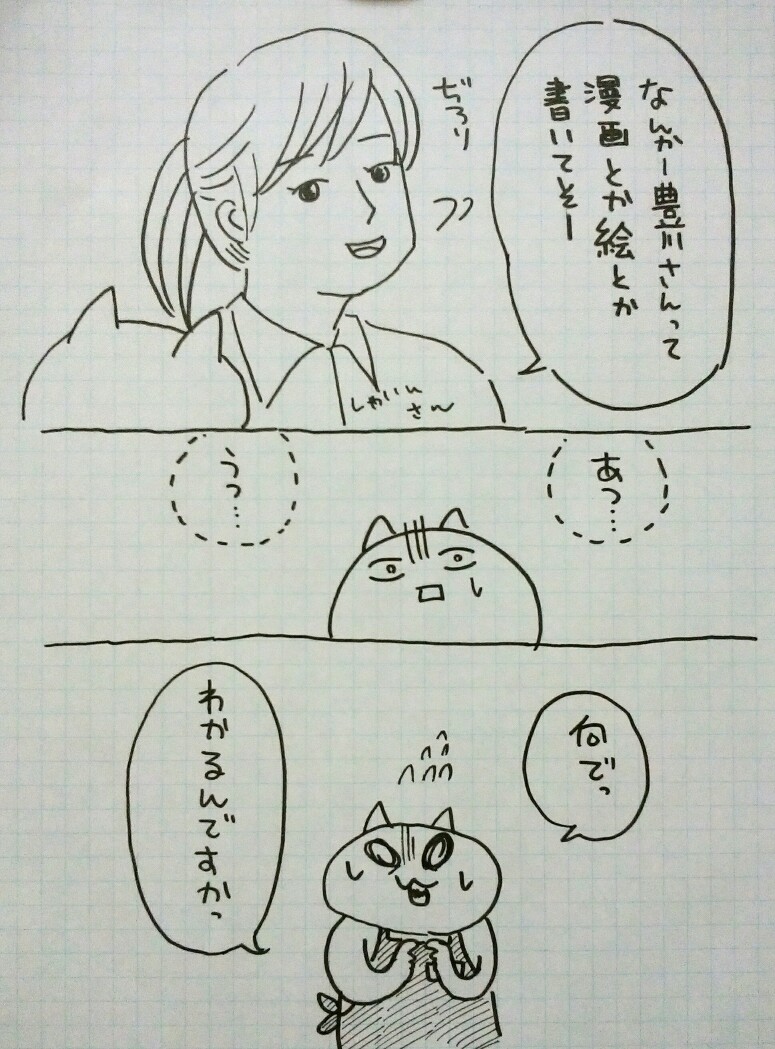 なんかー豊川さんって
漫画とか絵とか
書いてそー
ぢろり
しゃいん
さん
あっ…
うっ…
何でっ
わかるんですかっ